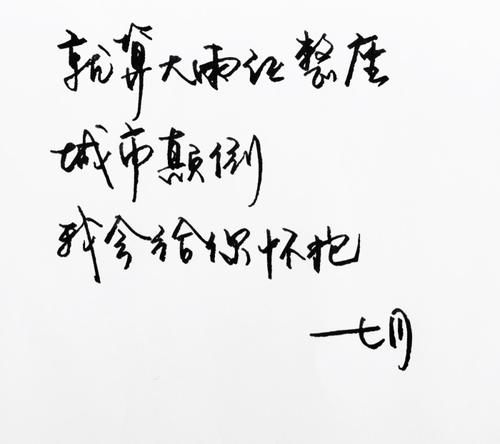 就算大雨让整座
城市颠倒
我会给你怀抱
一七月